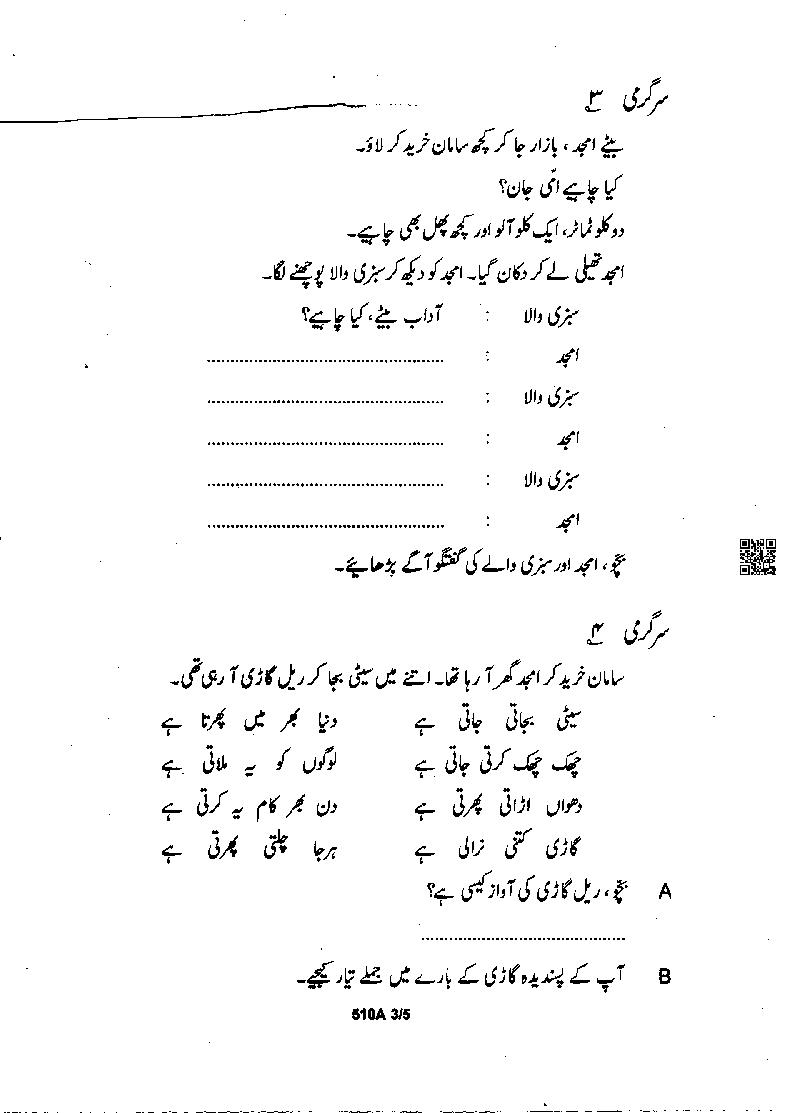 سرگرمی ۳
بیٹے امجد، بازار جا کر کچھ سامان خرید کر لاؤ۔
کیا چاہیے امّی جان؟
دو کلو ٹماٹر، ایک کلو آلو اور کچھ پھل بھی چاہیے۔
امجد تھیلی لے کر دکان گیا۔ امجد کو دیکھ کر سبزی والا پوچھنے لگا۔
سبزی والا : آداب بیٹے، کیا چاہیے؟
امجد : ..................................................
سبزی والا : ..................................................
امجد : ..................................................
سبزی والا : ..................................................
امجد : ..................................................
بچّو، امجد اور سبزی والے کی گفتگو آگے بڑھائیے۔
سرگرمی ۴
سامان خرید کر امجد گھر آ رہا تھا۔ اتنے میں سیٹی بجا کر ریل گاڑی آ رہی تھی۔
سیٹی بجاتی جاتی ہے دنیا بھر میں پھرتا ہے
چھک چھک کرتی جاتی ہے لوگوں کو یہ ملاتی ہے
دھواں اڑاتی پھرتی ہے دن بھر کام یہ کرتی ہے
گاڑی کتنی نرالی ہے ہرجا چلتی پھرتی ہے
A بچّو، ریل گاڑی کی آواز کیسی ہے؟
..................................................
B آپ کے پسندیدہ گاڑی کے بارے میں جملے تیار کیجیے۔
510A 3/5